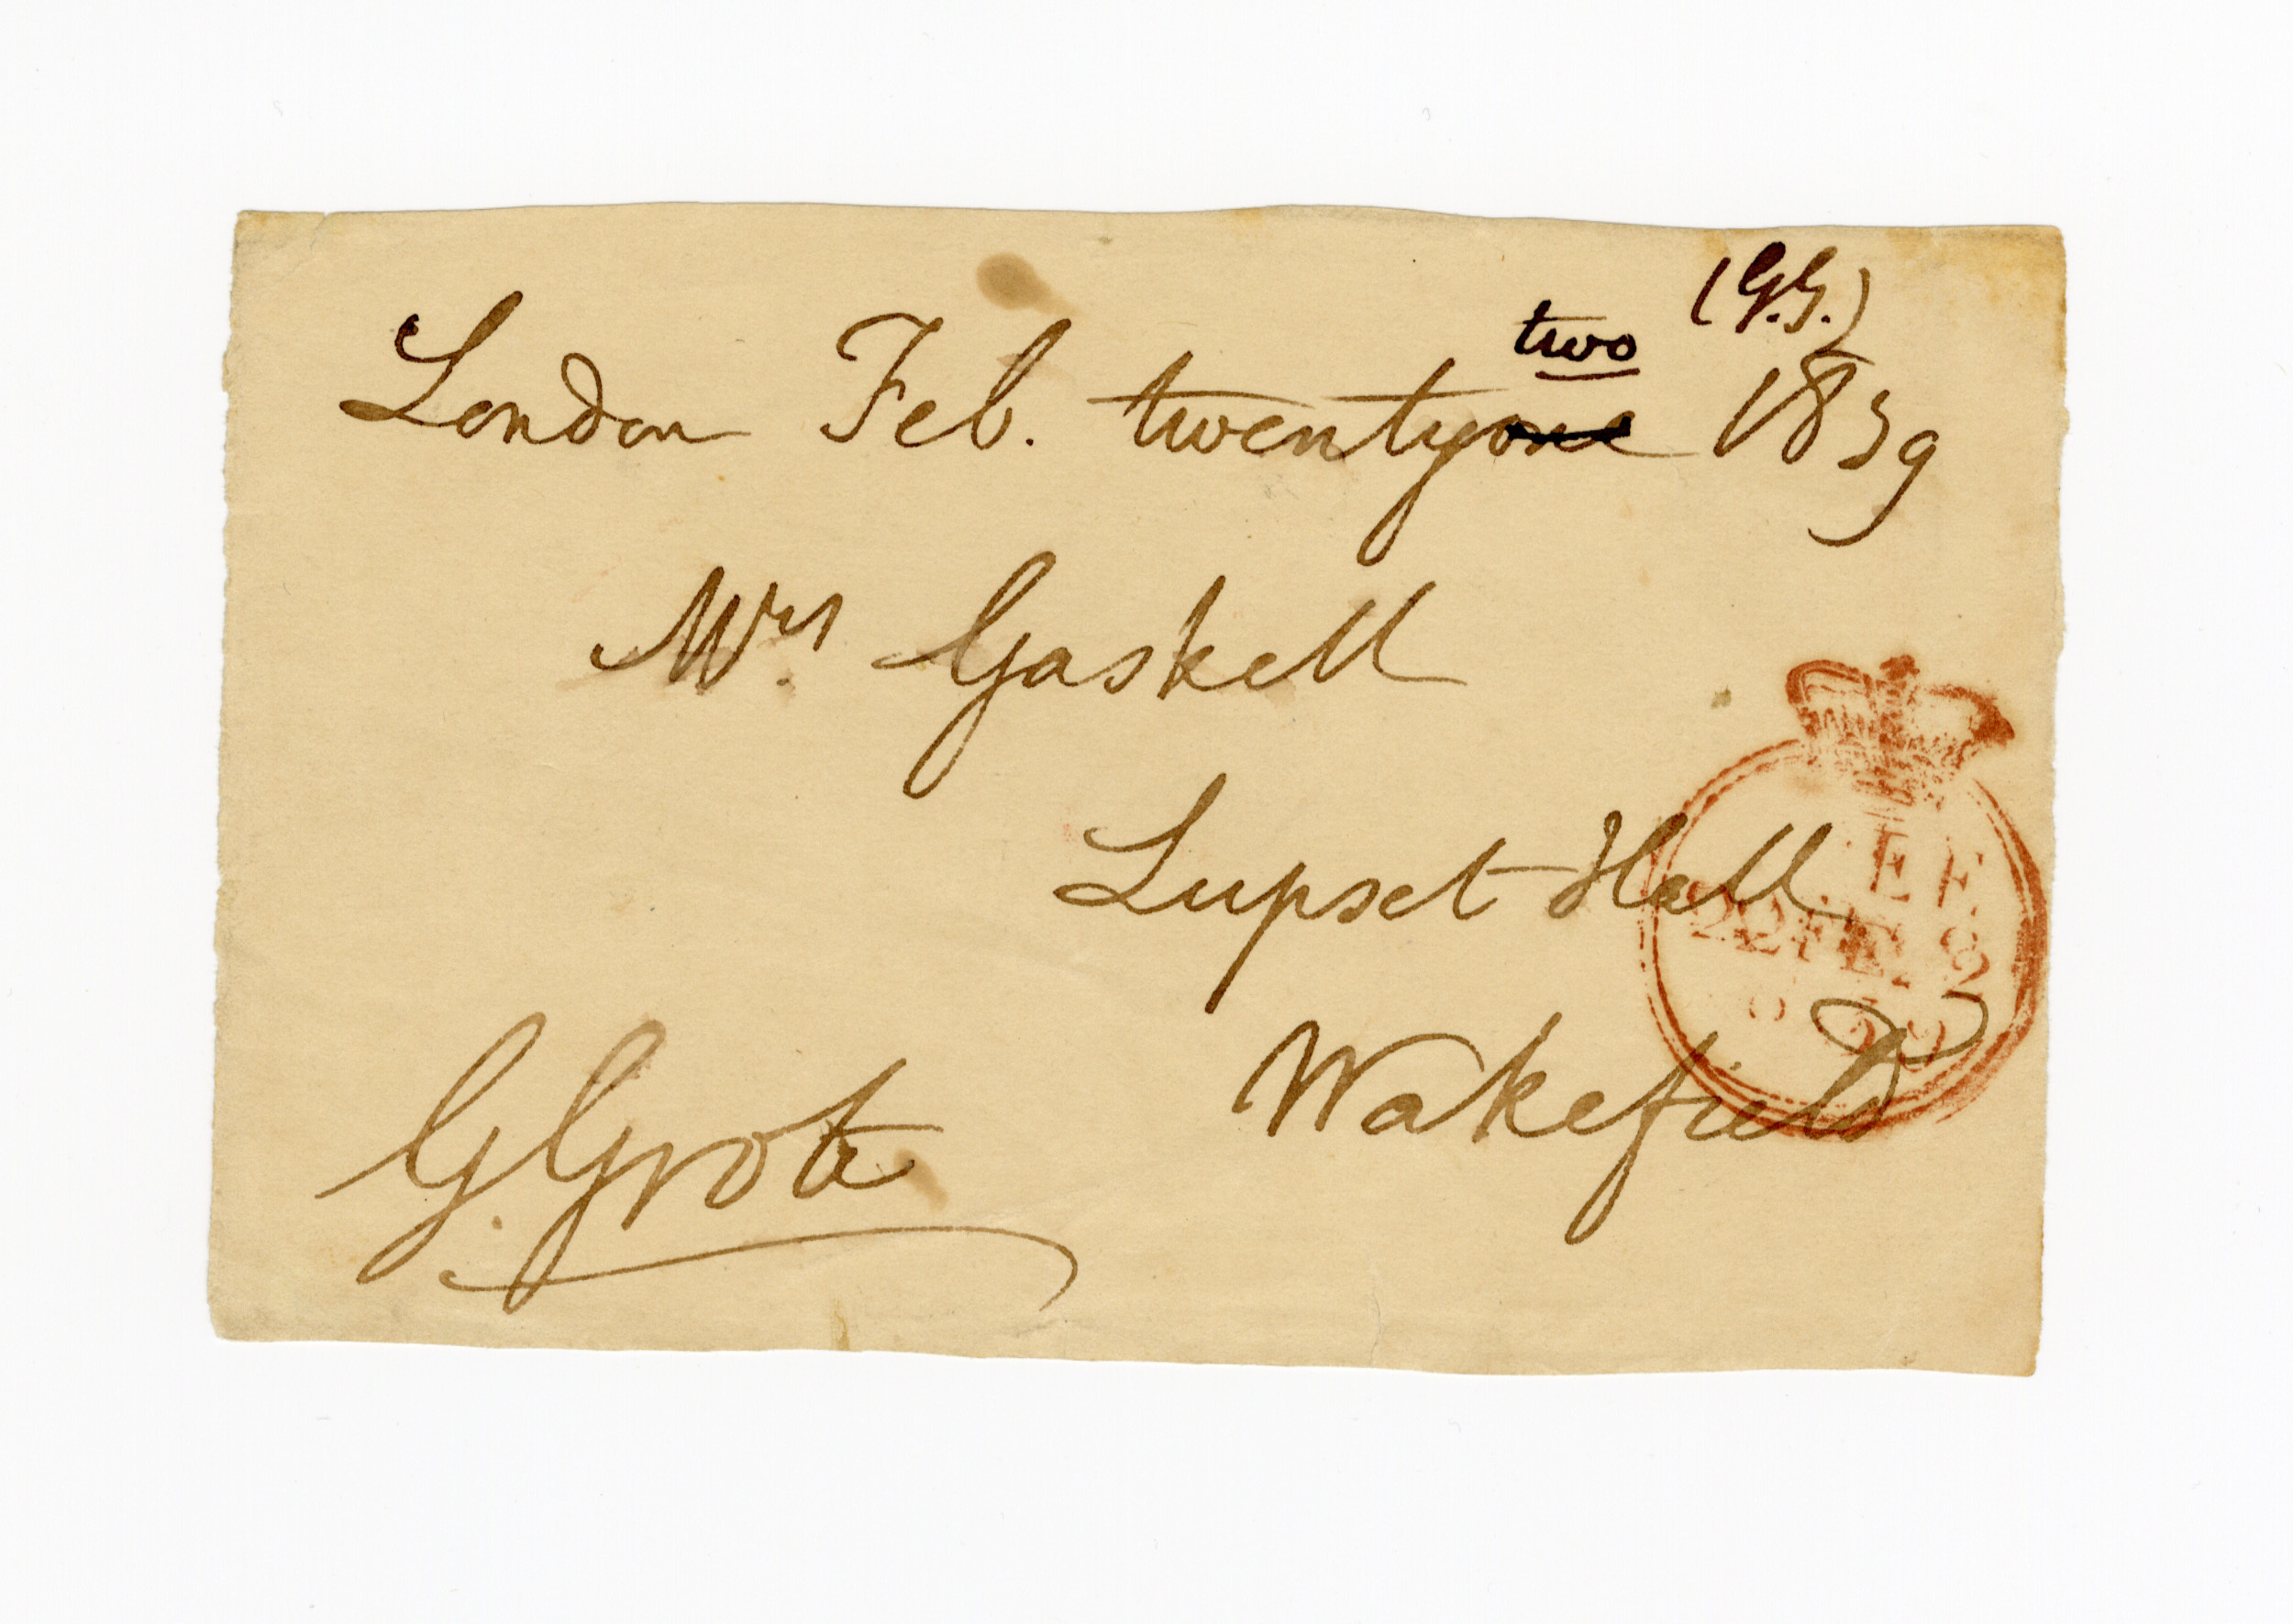 two (G.G.)
London Feb. twentyone 1839
Mrs. Gaskell
Lupset Hall
Wakefield
G. Grote
22 FE 22